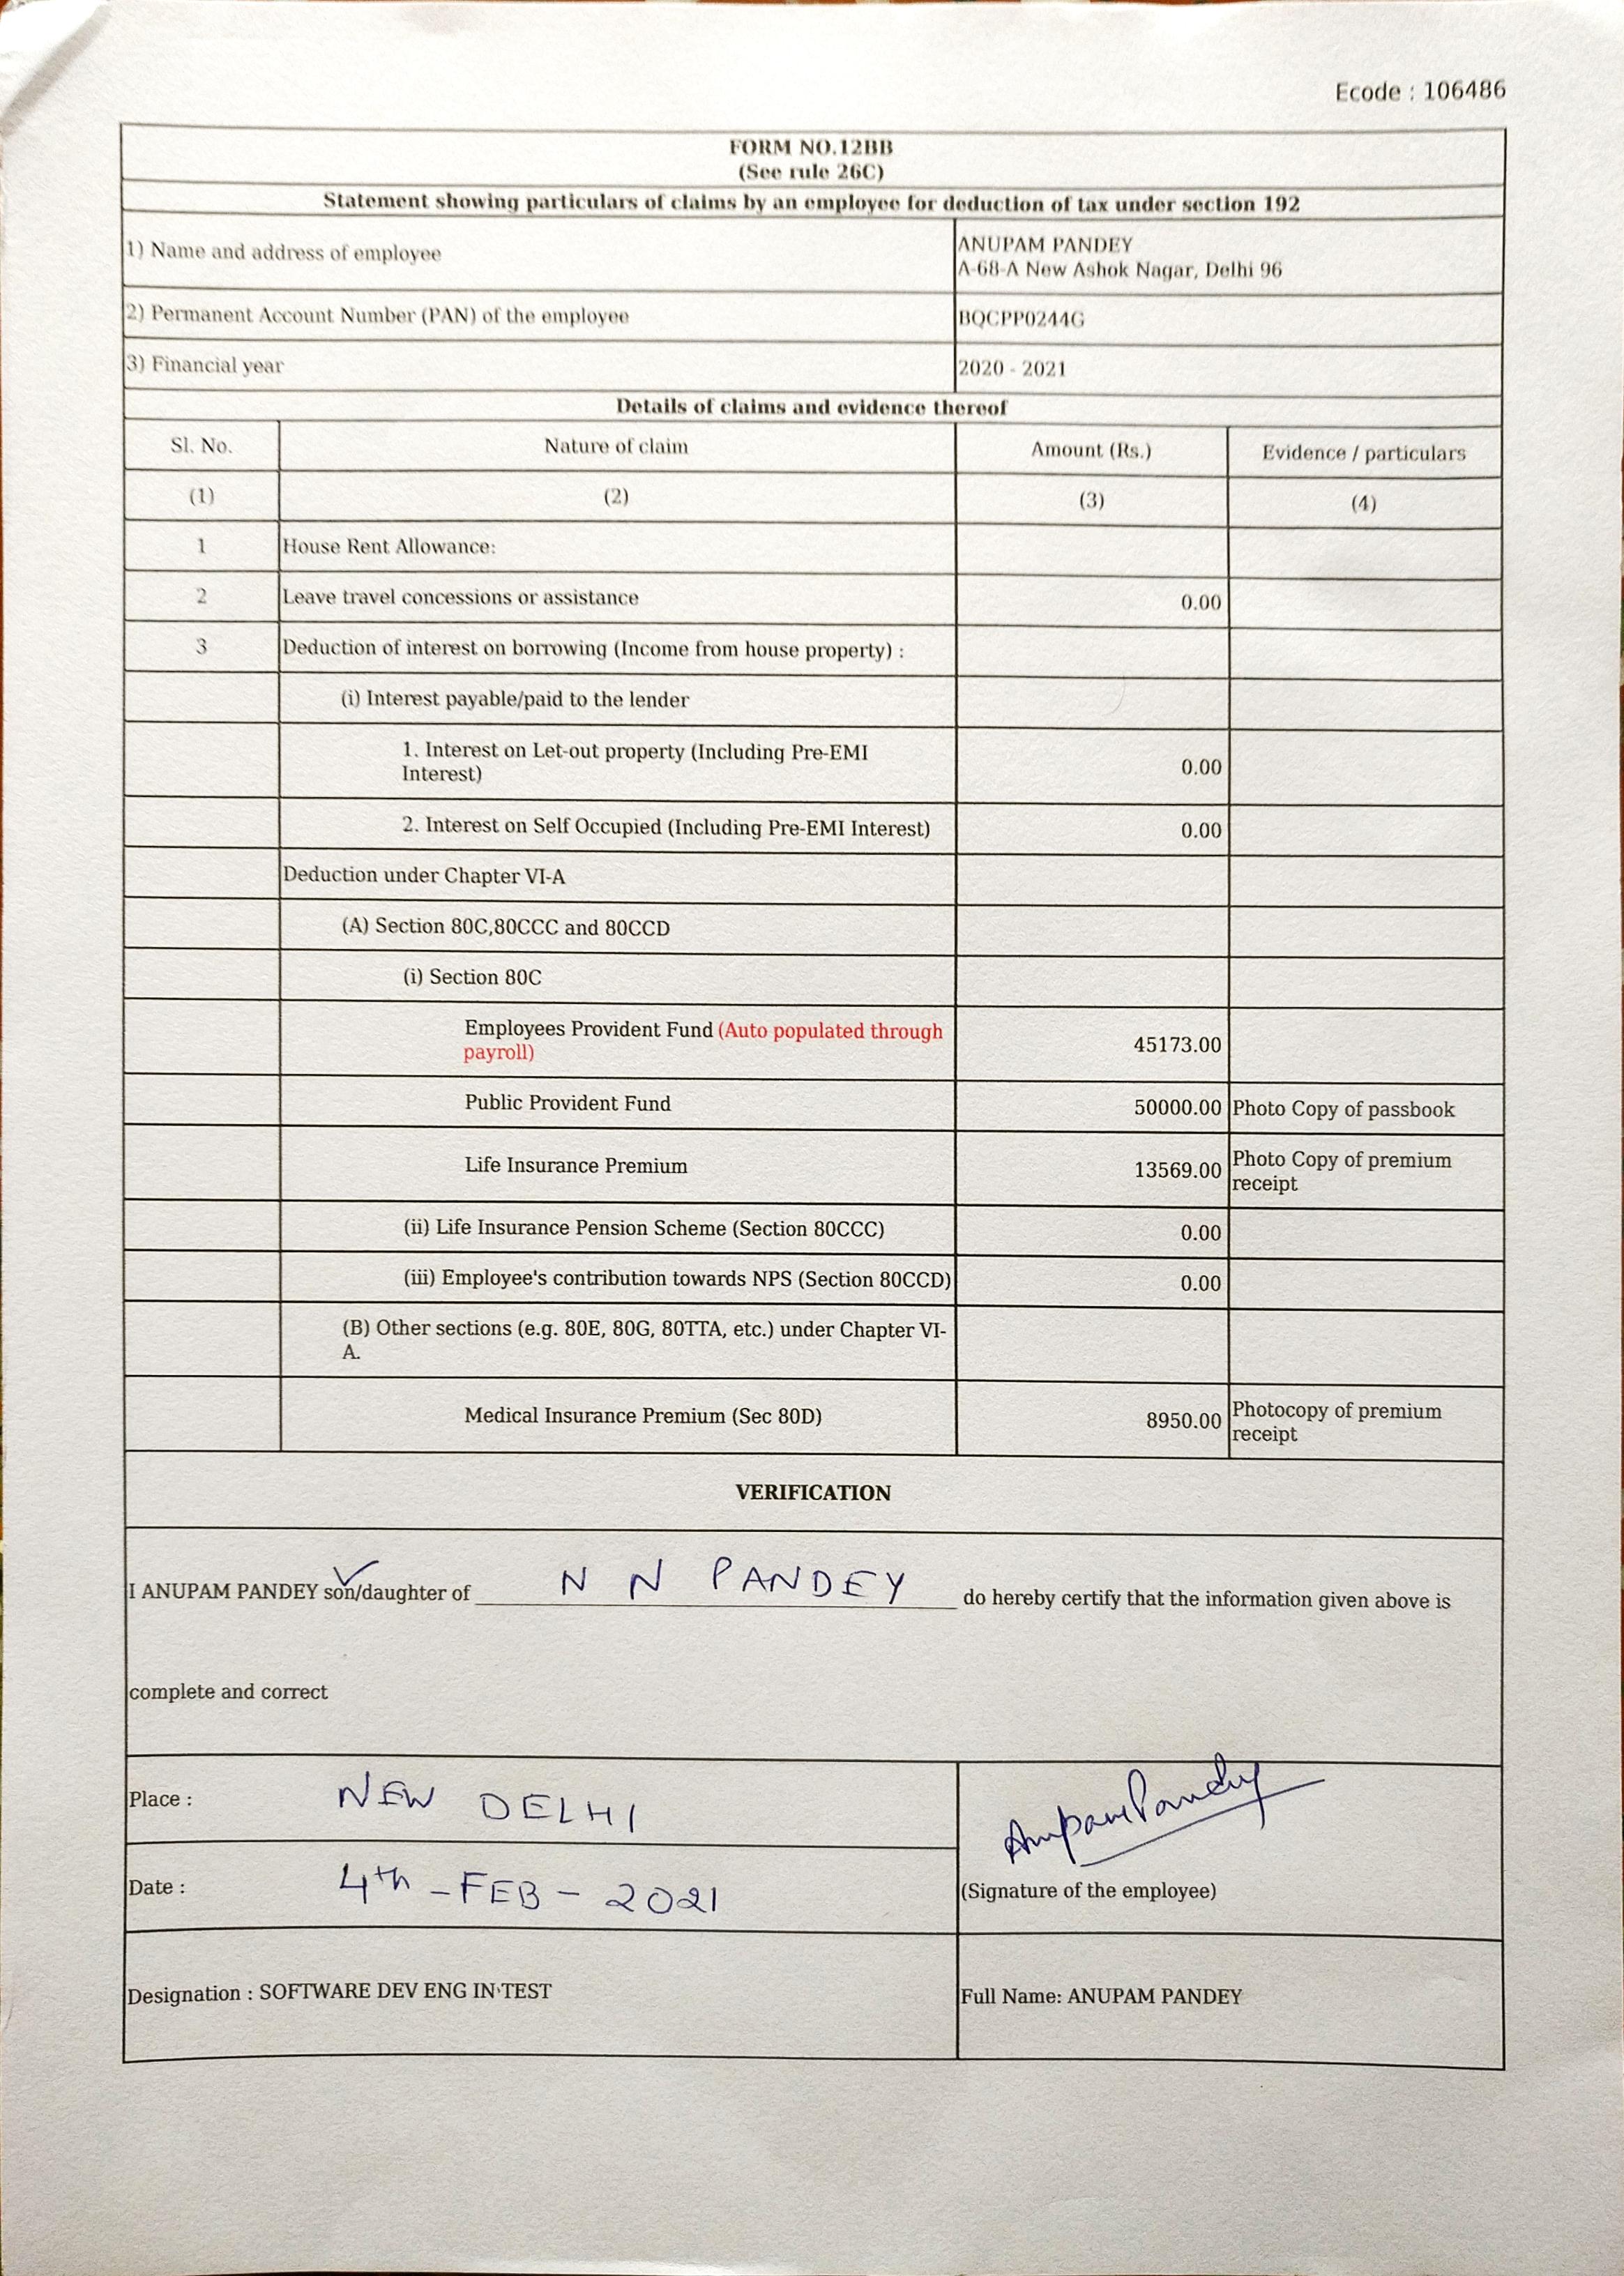 Ecode : 106486
FORM NO.12BB
(See rule 26C)
Statement showing particulars of claims by an employee for deduction of tax under section 192
1) Name and address of employee
ANUPAM PANDEY
A-68-A New Ashok Nagar, Delhi 96
2) Permanent Account Number (PAN) of the employee
BQCPP0244G
3) Financial year
2020 - 2021
Details of claims and evidence thereof
Sl. No. Nature of claim Amount (Rs.) Evidence / particulars
(1) (2) (3) (4)
1 House Rent Allowance:
2 Leave travel concessions or assistance 0.00
3 Deduction of interest on borrowing (Income from house property) :
(i) Interest payable/paid to the lender
1. Interest on Let-out property (Including Pre-EMI
Interest) 0.00
2. Interest on Self Occupied (Including Pre-EMI Interest) 0.00
Deduction under Chapter VI-A
(A) Section 80C,80CCC and 80CCD
(i) Section 80C
Employees Provident Fund (Auto populated through
payroll) 45173.00
Public Provident Fund 50000.00 Photo Copy of passbook
Life Insurance Premium 13569.00 Photo Copy of premium
receipt
(ii) Life Insurance Pension Scheme (Section 80CCC) 0.00
(iii) Employee's contribution towards NPS (Section 80CCD) 0.00
(B) Other sections (e.g. 80E, 80G, 80TTA, etc.) under Chapter VI-
A.
Medical Insurance Premium (Sec 80D) 8950.00 Photocopy of premium
receipt
VERIFICATION
I ANUPAM PANDEY son/daughter of N N PANDEY do hereby certify that the information given above is
complete and correct
Place : NEW DELHI
Anupam Pandey
Date : 4th - FEB - 2021
(Signature of the employee)
Designation : SOFTWARE DEV ENG IN TEST
Full Name: ANUPAM PANDEY